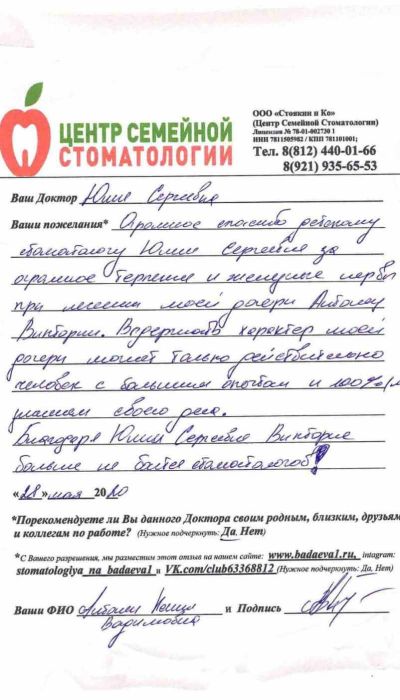 ЦЕНТР СЕМЕЙНОЙ
СТОМАТОЛОГИИ
ООО «Стоякин и Ко»
(Центр Семейной Стоматологии)
Лицензия № 78-01-002730 1
ИНН 7811505982 / КПП 781101001;
Тел. 8(812) 440-01-66
8(921) 935-65-53
Ваш Доктор Юлия Сергеевна
Ваши пожелания* Огромное спасибо детскому
стоматологу Юлии Сергеевне за
огромное терпение и железные нервы
при лечении моей дочери
Виктории. Выдержать характер моей
дочери может только действительно
человек с большим опытом и 100%
знанием своего дела.
Благодаря Юлии Сергеевне Виктория
больше не боится стоматологов!
«28» мая 2020
*Порекомендуете ли Вы данного Доктора своим родным, близким, друзьям
и коллегам по работе? (Нужное подчеркнуть: Да, Нет)
*С Вашего разрешения, мы разместим этот отзыв на нашем сайте: www.badaeva1.ru, intagram:
stomatologiya_na_badaeva1 и VK.com/club63368812 (Нужное подчеркнуть: Да, Нет)
Ваши ФИО и Подпись
Вадимовна